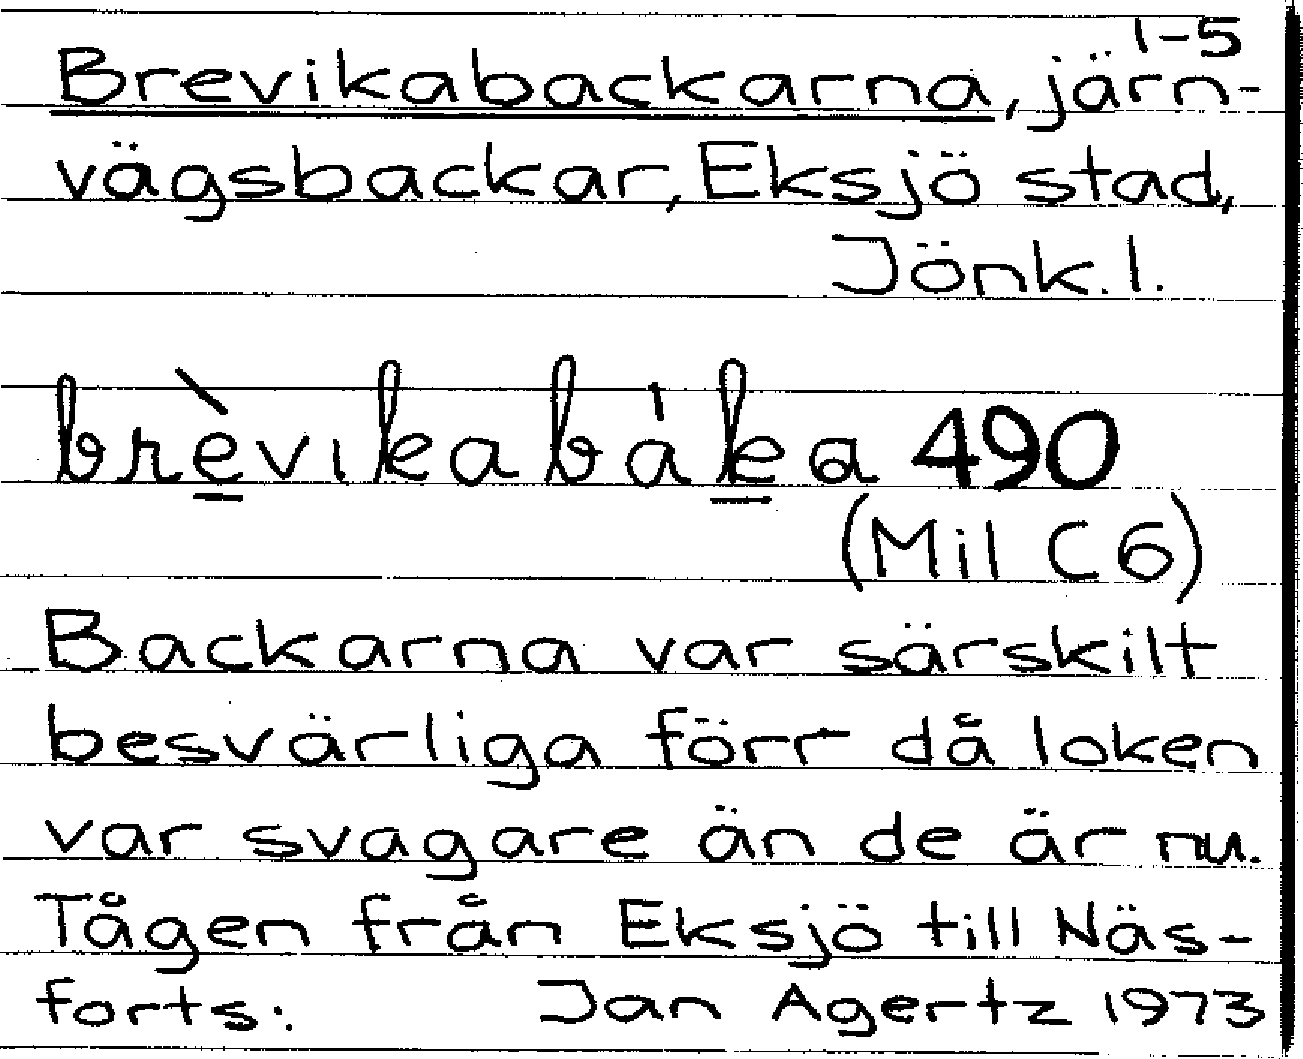 1-5
Brevikabackarna, järn-
vägsbackar, Eksjö stad,
Jönk. l.
brèvıkabáka 490
(Mil C 6)
Backarna var särskilt
besvärliga förr då loken
var svagare än de är nu.
Tågen från Eksjö till Näs-
forts. Jan Agertz 1973